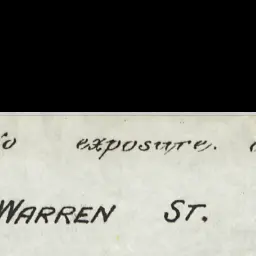 exposure.
WARREN ST.